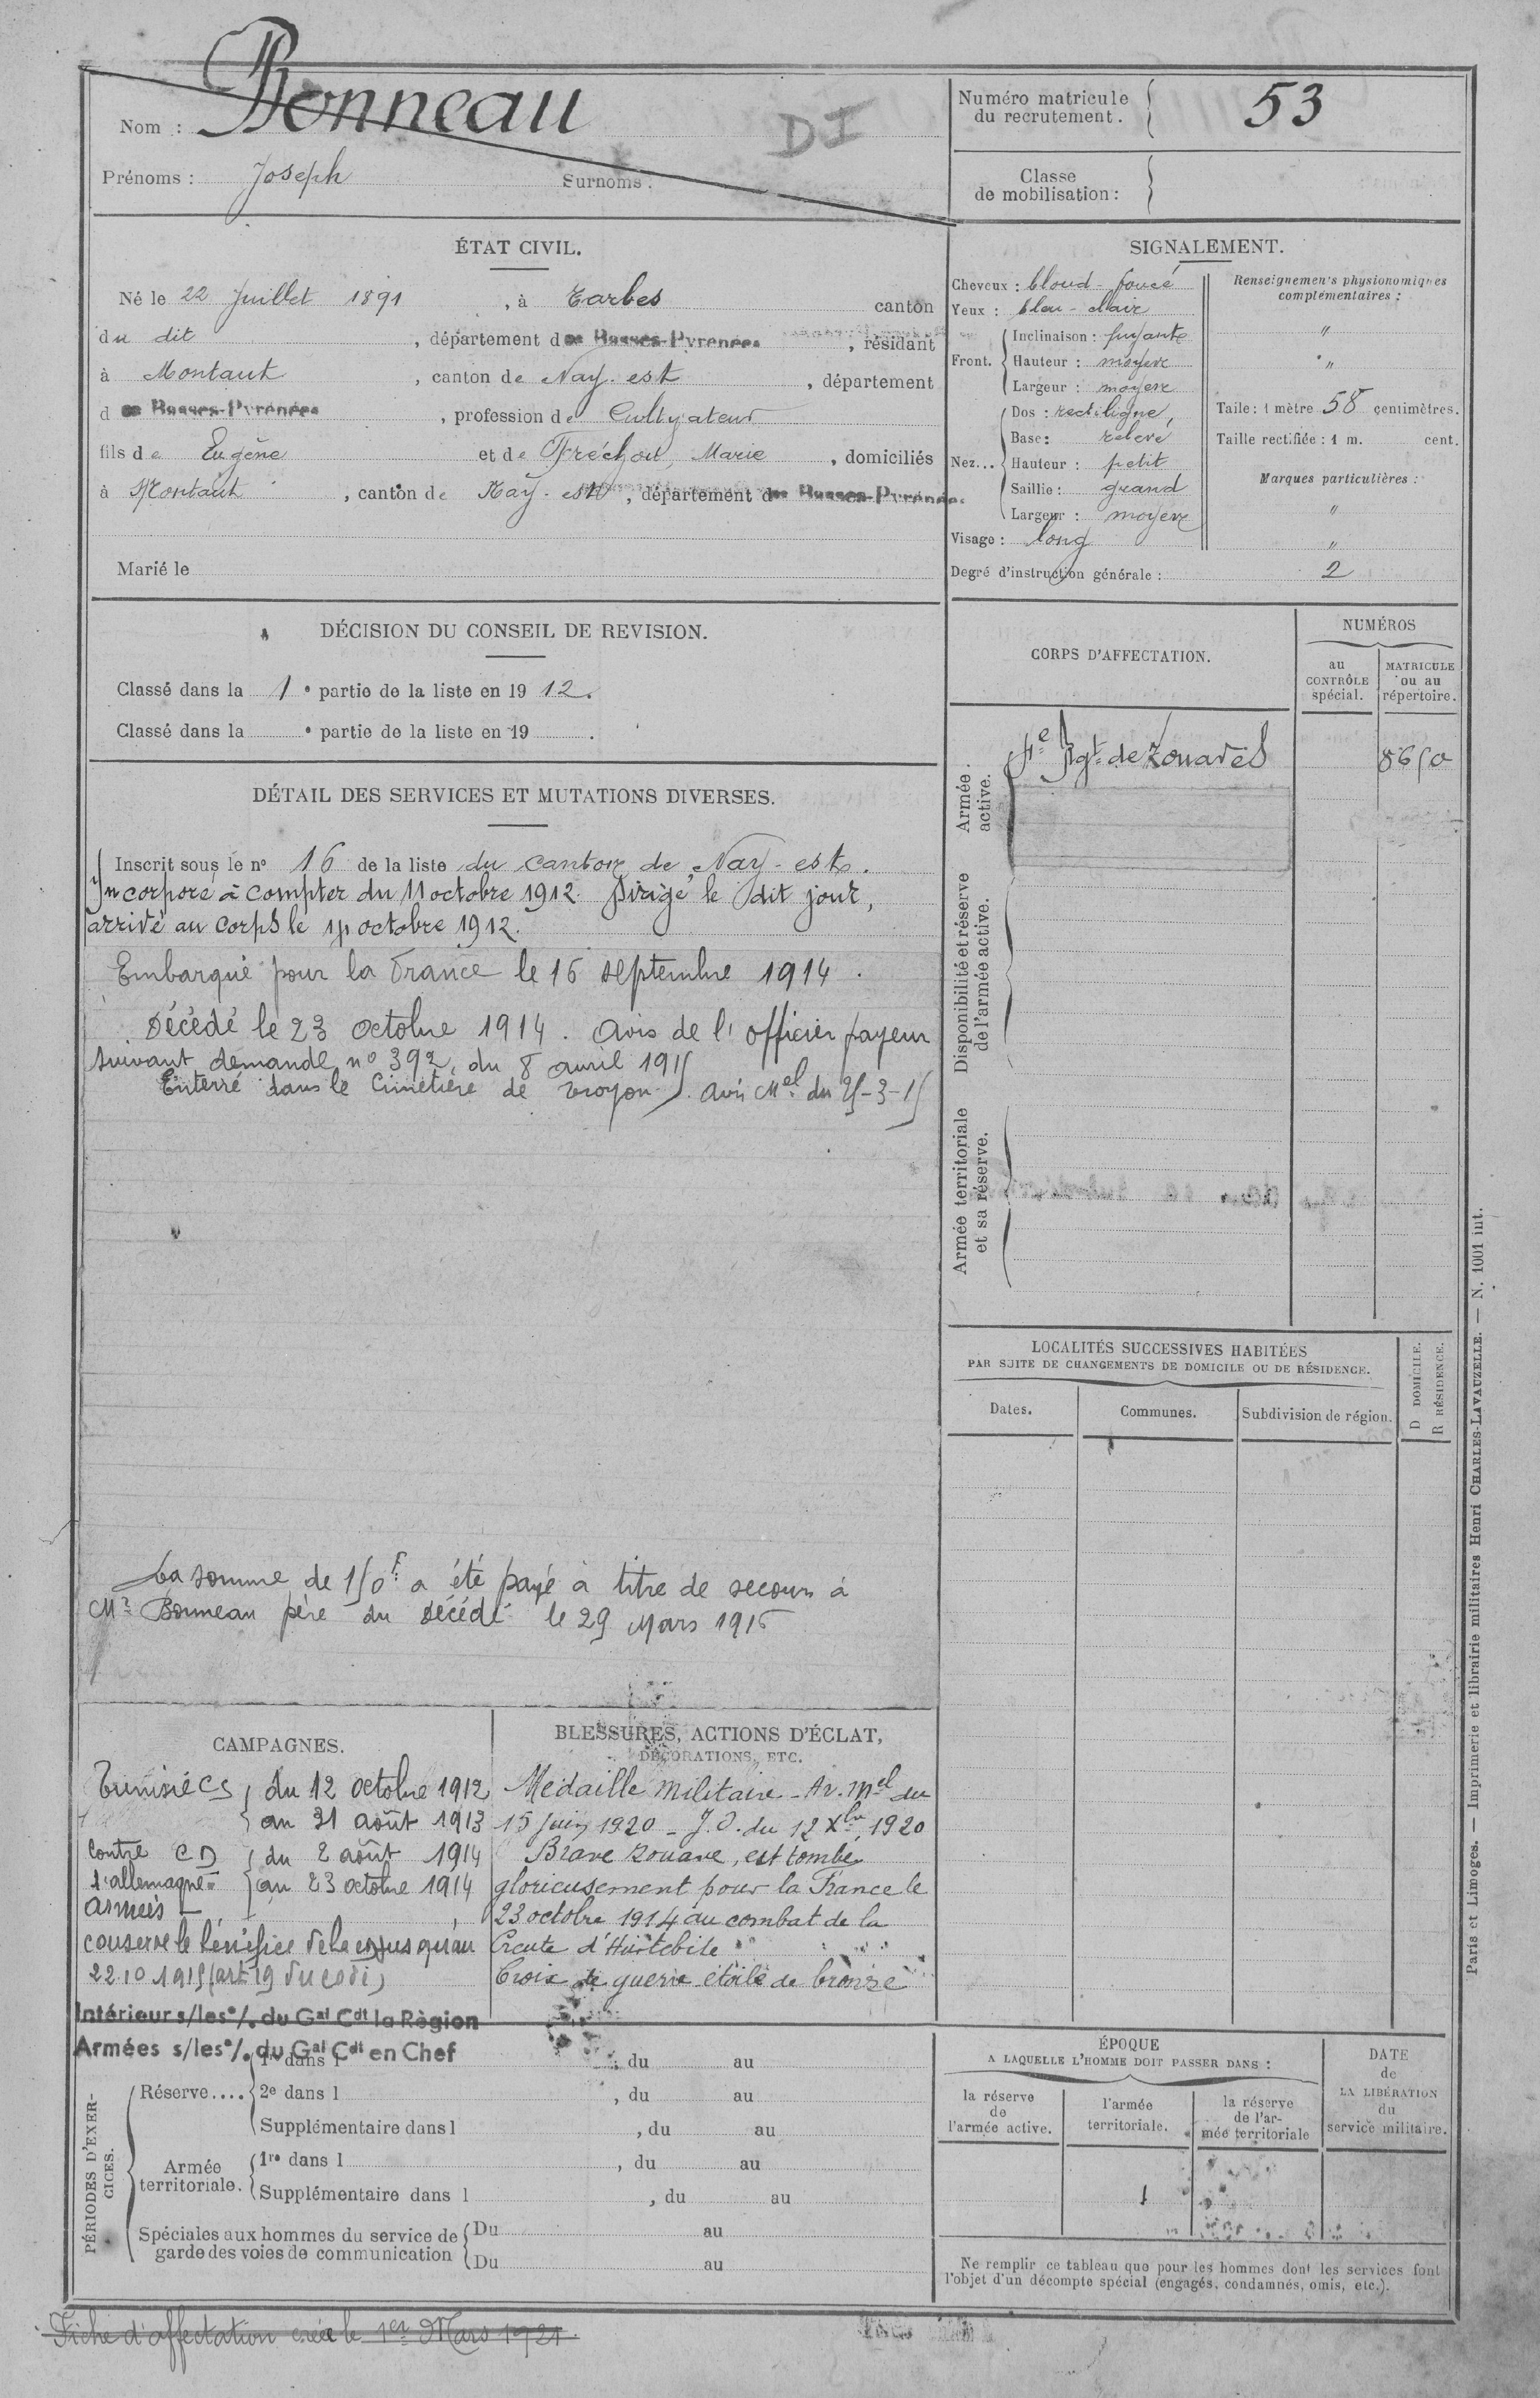 Nom : Bonneau
DI
Prénoms : Joseph Surnoms :
Numéro matricule
du recrutement. 53
Classe
de mobilisation :
ÉTAT CIVIL.
Né le 22 Juillet 1891, à Tarbes canton
du dit, département des Basses-Pyrénées, résidant
à Montaut, canton de Nay-est, département
des Basses-Pyrénées, profession de Cultivateur
fils de Eugène et de Fréchou, Marie, domiciliés
à Montaut, canton de Nay-est, département des Basses-Pyrénées
Marié le
SIGNALEMENT.
Cheveux : blond-foncé
Yeux : bleu-clair
Front. Inclinaison : fuyante
Hauteur : moyene
Largeur : moyene
Nez... Dos : rectiligne
Base : relevé
Hauteur : petit
Saillie : grand
Largeur : moyene
Visage : long
Renseignements physionomiques
complémentaires :
"
"
Taille : 1 mètre 58 centimètres.
Taille rectifiée : 1 m. cent.
Marques particulières :
"
"
Degré d'instruction générale : 2
DÉCISION DU CONSEIL DE REVISION.
Classé dans la 1e partie de la liste en 1912.
Classé dans la e partie de la liste en 19 .
DÉTAIL DES SERVICES ET MUTATIONS DIVERSES.
Inscrit sous le n° 16 de la liste du canton de Nay-est.
Incorporé à compter du 11 octobre 1912. Dirigé le dit jour,
arrivé au corps le 14 octobre 1912.
Embarqué pour la France le 16 septembre 1914.
Décédé le 23 octobre 1914. Avis de l'officier payeur
suivant demande n° 392, du 8 avril 1915
Enterré dans le Cimetière de Troyon. Avis Mel du 25-3-15
La somme de 150f a été payé à titre de secours à
Mr Bonneau père du décédé le 29 Mars 1916
CORPS D'AFFECTATION.
NUMÉROS
au
CONTRÔLE
spécial.
MATRICULE
ou au
répertoire.
Armée
active.
4e Rgt de Zouaves 8650
Disponibilité et réserve
de l'armée active.
Armée territoriale
et sa réserve.
LOCALITÉS SUCCESSIVES HABITÉES
PAR SUITE DE CHANGEMENTS DE DOMICILE OU DE RÉSIDENCE.
Dates.
Communes.
Subdivision de région.
D DOMICILE.
R RÉSIDENCE.
CAMPAGNES.
Tunisie CS du 12 octobre 1912
au 31 août 1913
Contre CD du 2 août 1914
l'allemagne au 23 octobre 1914
armées
conserve le bénéfice de la CD jusqu'au
22.10.1915 (art 19 du code)
Intérieur s/les o/. du Gal Cdt la Règion
Armées s/les o/. du Gal Cdt en Chef
BLESSURES, ACTIONS D'ÉCLAT,
DÉCORATIONS, ETC.
Médaille Militaire - Ar. Mel du
15 Juin 1920 - J.O. du 12 Xbre 1920
Brave Zouave, est tombé
glorieusement pour la France le
23 octobre 1914 au combat de la
Creute d'Hurtebise
Croix de guerre étoile de bronze
PÉRIODES D'EXER-
CICES.
Réserve.... 1re dans l , du au
2e dans l , du au
Supplémentaire dans l , du au
Armée
territoriale. 1re dans l , du au
Supplémentaire dans l , du au
Spéciales aux hommes du service de
garde des voies de communication
Du au
Du au
ÉPOQUE
A LAQUELLE L'HOMME DOIT PASSER DANS :
la réserve
de
l'armée active.
l'armée
territoriale.
la réserve
de l'ar-
mée territoriale
DATE
de
LA LIBÉRATION
du
service militaire.
Ne remplir ce tableau que pour les hommes dont les services font
l'objet d'un décompte spécial (engagés, condamnés, omis, etc.).
Fiche d'affectation créée le 1er Mars 1921.
Paris et Limoges. — Imprimerie et librairie militaires Henri CHARLES-LAVAUZELLE. — N. 1001 int.